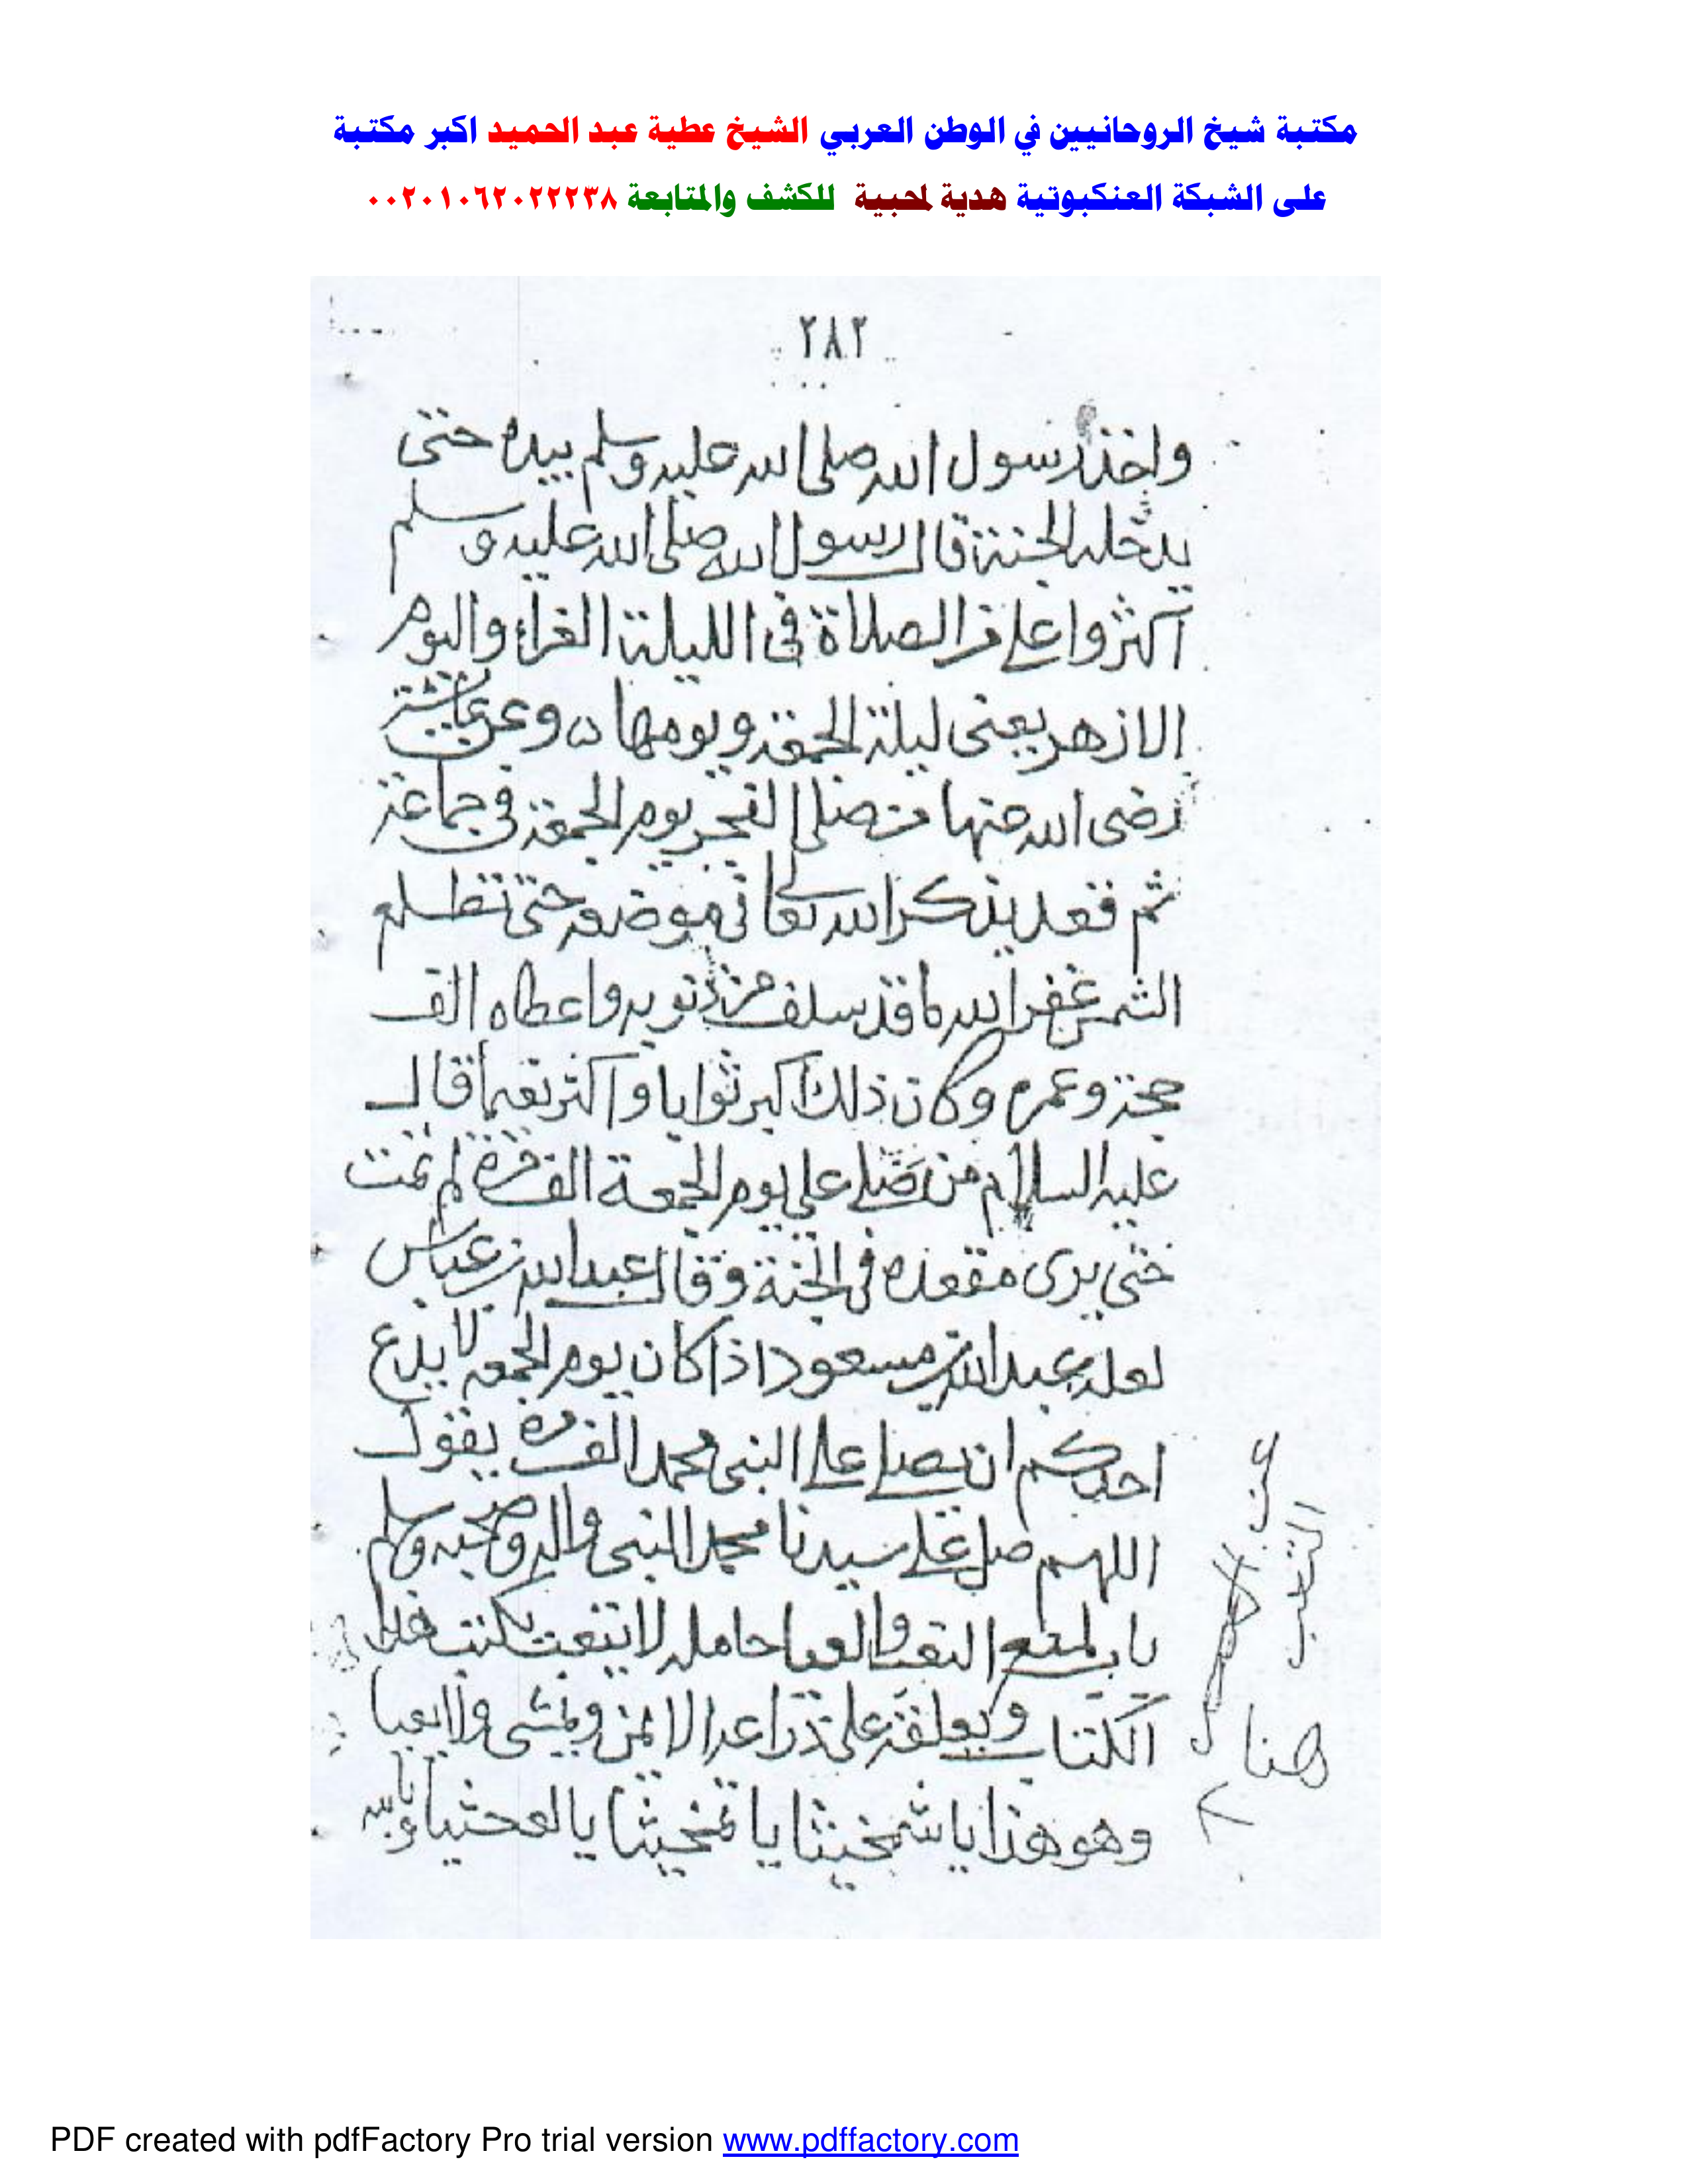 مكتبة شيخ الروحانيين في الوطن العربي الشيخ عطية عبد الحميد اكبر مكتبة
على الشبكة العنكبوتية هدية لمحبية للكشف والمتابعة ٠٠٢٠١٠٦٢٠٢٢٢٣٨
٢٨٢
واخذ رسول الله صلى الله عليه وسلم بيده حتى
يدخله الجنة قال رسول الله صلى الله عليه وسلم
آكثروا على من الصلاة فى الليلة الغراء واليوم
الازهر يعنى ليلة الجمعة ويومها ٥ وعن عايشة
رضى الله عنها من صلى الفجر يوم الجمعة فى جماعة
ثم قعد يذكر الله تعالى فى موضعه حتى تطلع
الشمس غفر الله ما قد سلف من ذنوبه واعطاه الف
حجة وعمره وكان ذلك اكبر ثوابا واكثر نعيما قال
عليه السلام من صلى على يوم الجمعة الف مرة لم يمت
حتى يرى مقعده فى الجنة وقال عبد الله بن عباس
لعله عبد الله بن مسعود اذا كان يوم الجمعه لا يدع
احدكم ان يصلى على النبى محمد الف مرة يقول
اللهم صل على سيدنا محمد النبى واله وصحبه وسلم
باب لمنع التعب والعيا حامله لا يتعب يكتب هذا
الكتاب ويعلقه على ذراعه الايمن ويمشى ولا يعيا
وهو هذا يا شمخيثا يا تمخيثا يا
التعب
هنا
PDF created with pdfFactory Pro trial version www.pdffactory.com